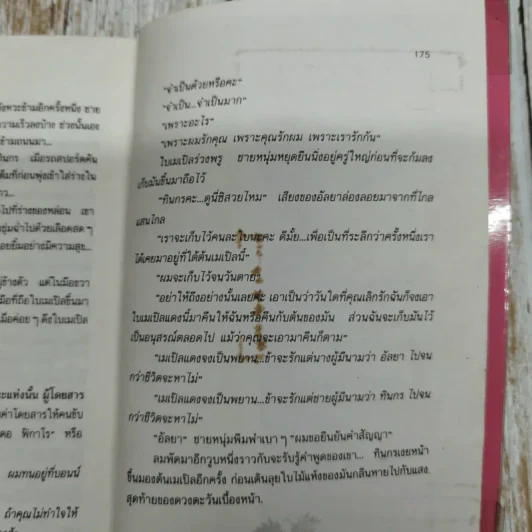 ังหวะข้ามอีกครั้งหนึ่ง ชาย
ความเร็วลงบ้าง ช่วงนั้นเอง
ข้ามถนนมา...
ทินกร เมื่อรถสปอร์ตคัน
ไปที่ร่างของหล่อน เขา
ชุ่มฉ่ำไปด้วยเลือดสด ๆ
อยยิ้มอย่างมีความสุข...
ผู้โดยสาร
ค่าโดยสารให้คนขับ
ผมทนอยู่ที่บอนน์
ถ้าคุณไม่ทำใจให้
175
"จำเป็นด้วยหรือคะ"
"จำเป็น...จำเป็นมาก"
"เพราะอะไร"
"เพราะผมรักคุณ เพราะคุณรักผม เพราะเรารักกัน"
ใบเมเปิลร่วงพรู ชายหนุ่มหยุดยืนนิ่งอยู่ครู่ใหญ่ก่อนที่จะก้มลง
เก็บมันขึ้นมาถือไว้
"ทินกรคะ...ดูนี่ซิสวยไหม" เสียงของอัลยาล่องลอยมาจากที่ไกล
แสนไกล
"เราจะเก็บไว้คนละใบนะคะ ดีมั้ย...เพื่อเป็นที่ระลึกว่าครั้งหนึ่งเรา
ได้เคยมาอยู่ที่ใต้ต้นเมเปิลนี้"
"ผมจะเก็บไว้จนวันตาย"
"อย่าให้ถึงอย่างนั้นเลยค่ะ เอาเป็นว่าวันใดที่คุณเลิกรักฉันก็จงเอา
ใบเมเปิลแดงนี้มาคืนให้ฉันหรือคืนกับต้นของมัน ส่วนฉันจะเก็บมันไว้
เป็นอนุสรณ์ตลอดไป แม้ว่าคุณจะเอามาคืนก็ตาม"
"เมเปิลแดงจงเป็นพยาน...ข้าจะรักแต่นางผู้มีนามว่า อัลยา ไปจน
กว่าชีวิตจะหาไม่"
"เมเปิลแดงจงเป็นพยาน...ข้าจะรักแต่ชายผู้มีนามว่า ทินกร ไปจน
กว่าชีวิตจะหาไม่"
"อัลยา" ชายหนุ่มพึมพำเบา ๆ "ผมขอยืนยันคำสัญญา"
ลมพัดมาอีกวูบหนึ่งราวกับจะรับรู้คำพูดของเขา... ทินกรเงยหน้า
ขึ้นมองต้นเมเปิลอีกครั้ง ก่อนเดินลุยใบไม้แห้งของมันกลืนหายไปกับแสง
สุดท้ายของดวงตะวันเบื้องหน้า.